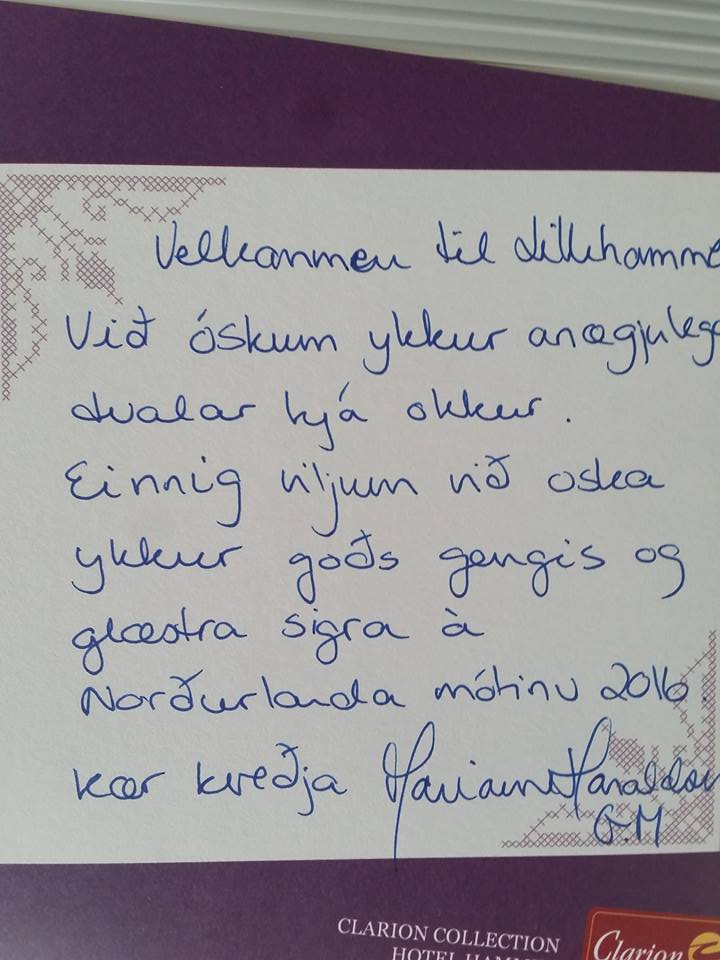 Velkanmen til Lillehamme
Við óskum ykkur anægjulega
dvalar hjá okkur.
Einnig viljum við oska
ykkur goðs gengis og
glæstra sigra à
Norðurlanda mótinu 2016.
kær kveðja Marianne Haraldsen
G.M
CLARION COLLECTION
HOTEL HAMM
Clarion